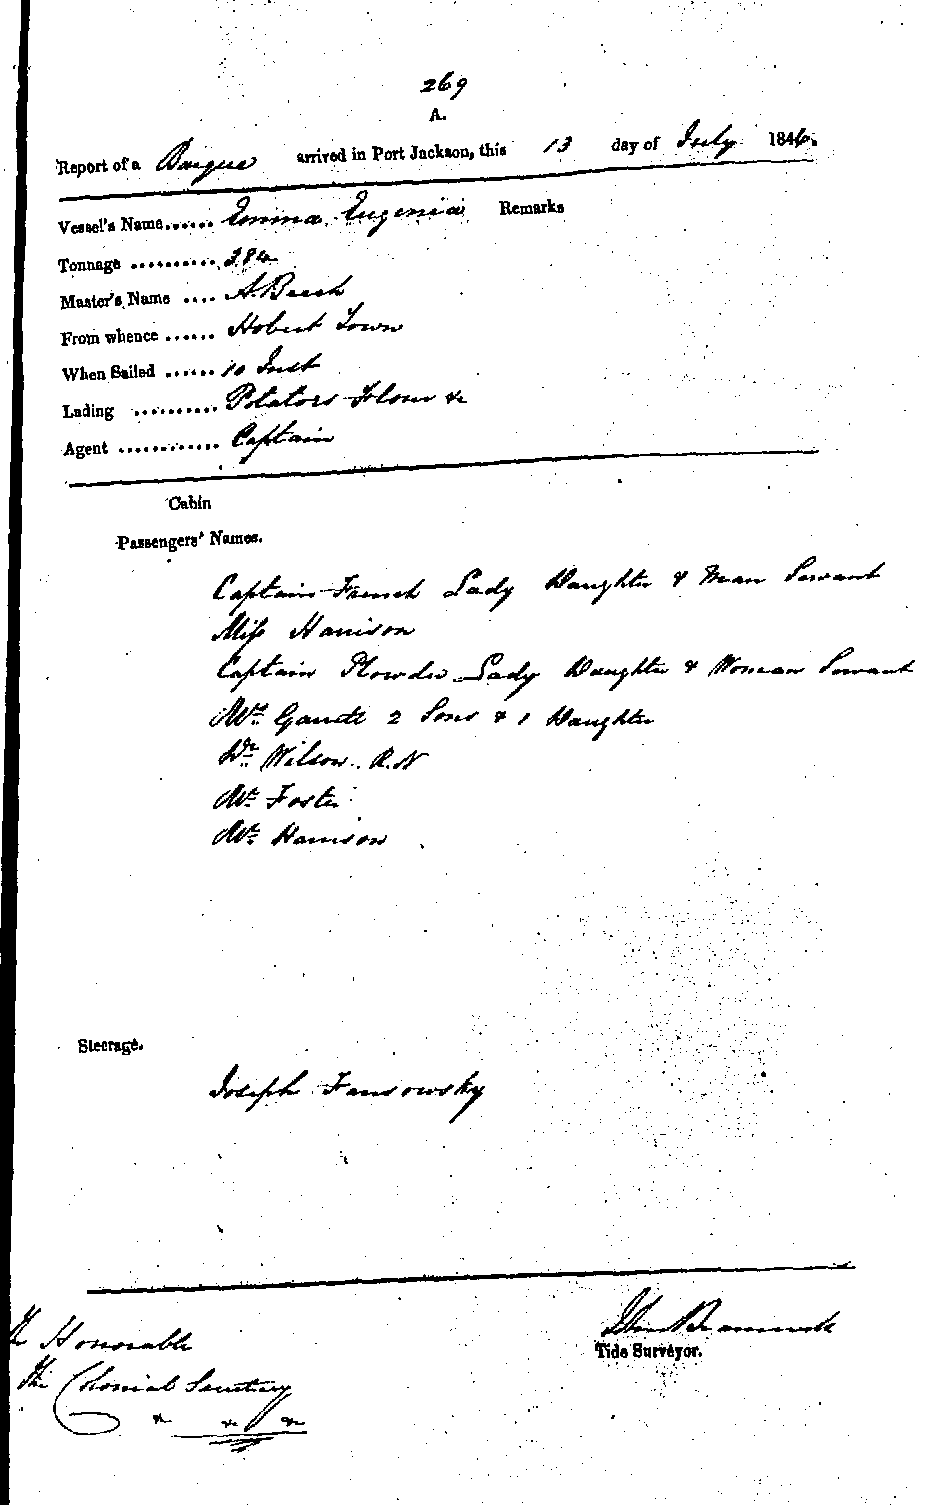 269
A.
Report of a Barque arrived in Port Jackson, this 13 day of July 1846.
Vessel's Name...... Emma Eugenia Remarks
Tonnage ..........
Master's Name .... A. Beech
From whence ...... Hobert Town
When Sailed ...... 10 Inst
Lading .......... Potators Flour &c
Agent ............ Captain
Cabin
Passengers' Names.
Captain French Lady Daughter & Man Servant
Miss Harrison
Captain Lady Daughter & Woman Servant
2 Sons & 1 Daughter
Dr. Wilson. R.N
Mr. Foster
Mr. Harrison
Steerage.
Joseph
The Honorable
The Colonial Secretary
&c &c &c
John
Tide Surveyor.